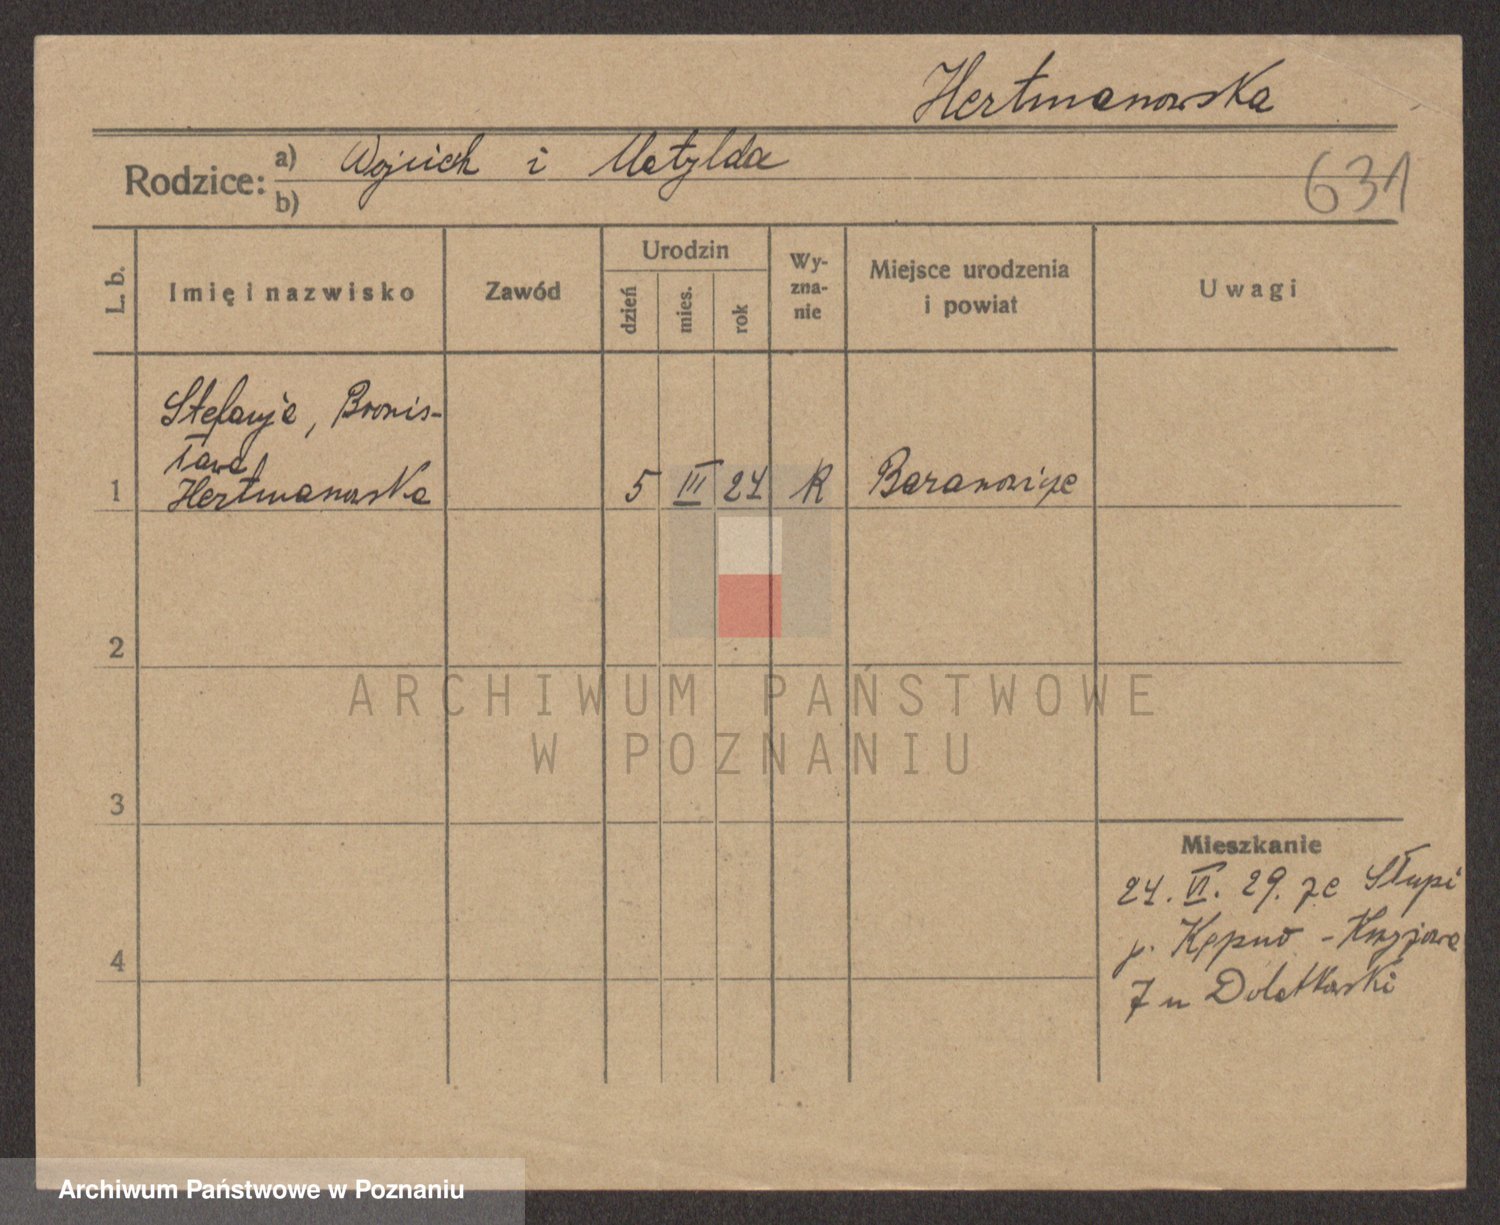 Hertmanowska
Rodzice: a) Wojciech i Matylda
b)
631
L. b.
Imię i nazwisko
Zawód
Urodzin
dzień
mies.
rok
Wy-
zna-
nie
Miejsce urodzenia
i powiat
Uwagi
Stefanja, Bronis-
ława
1 Hertmanowska 5 III 24 R
2
3
4
Mieszkanie
24. VI. 29. ze Słupi
p. Kępno -
7 u
ARCHIWUM PAŃSTWOWE
W POZNANIU
Archiwum Państwowe w Poznaniu